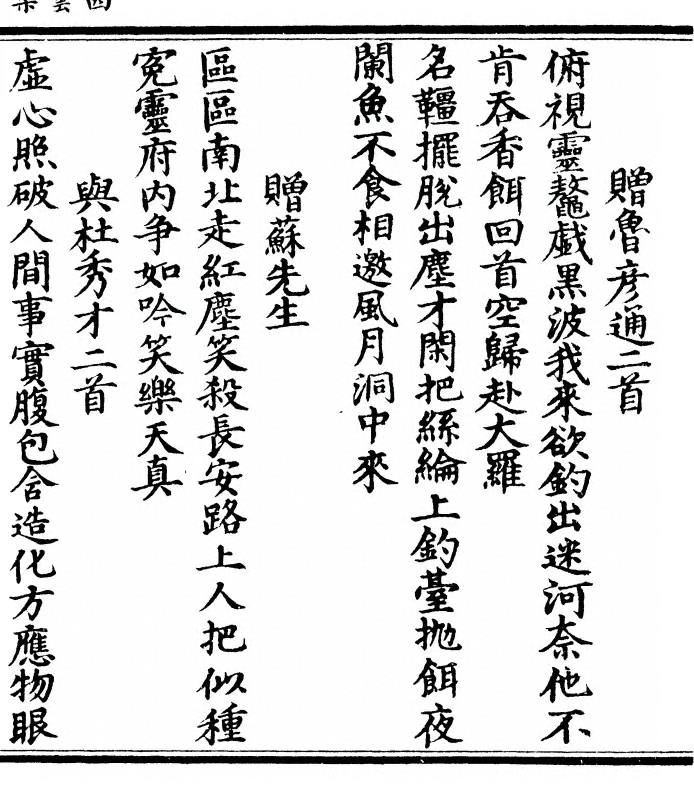 贈魯彦通二首
俯視靈鼇戯黒波我來欲釣出迷河奈他不
肯吞香餌回首空歸赴大羅
名韁擺脫出塵才閑把絲綸上釣臺抛餌夜
闌魚不食相邀風月洞中來
贈蘇先生
區區南北走紅塵笑殺長安路上人把似種
寃靈府内争如吟笑樂天真
與杜秀才二首
虚心照破人間事實腹包含造化方應物眼